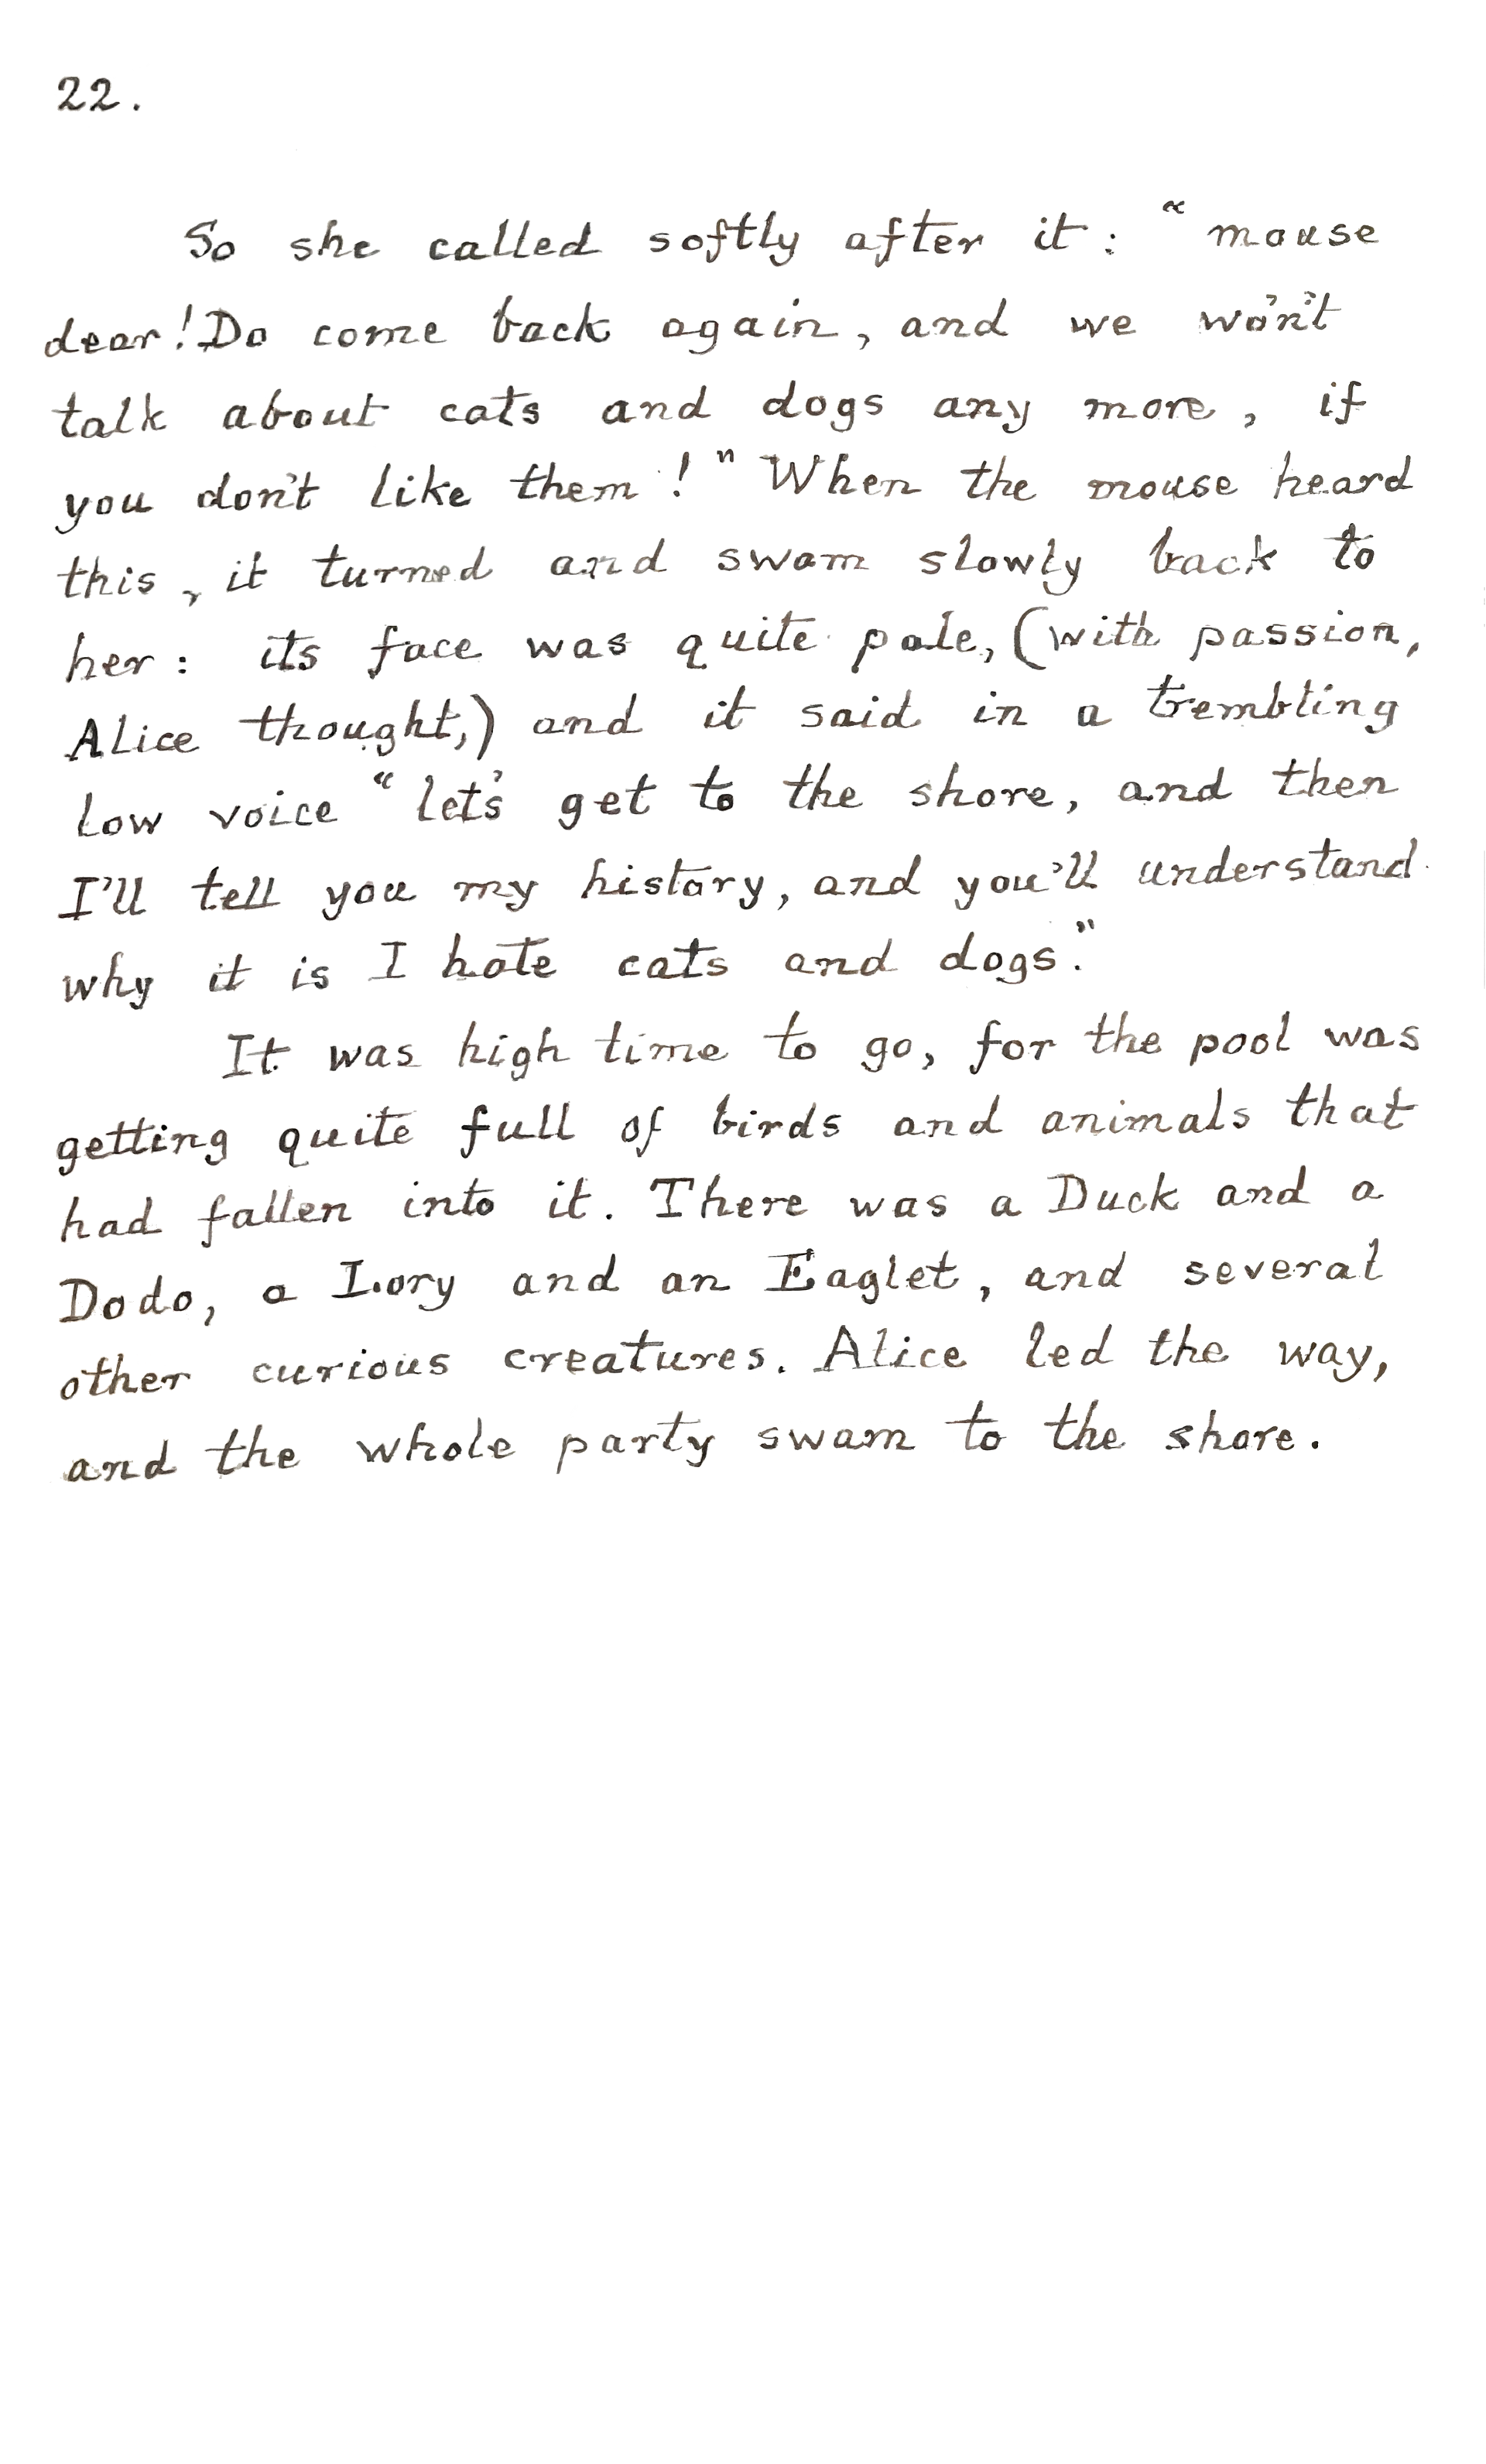 22.
So she called softly after it: "mouse
dear! Do come back again, and we wo'n't
talk about cats and dogs any more, if
you don't like them!" When the mouse heard
this, it turned and swam slowly back to
her: its face was quite pale, (with passion,
Alice thought,) and it said in a trembling
low voice "let's get to the shore, and then
I'll tell you my history, and you'll understand
why it is I hate cats and dogs."
It was high time to go, for the pool was
getting quite full of birds and animals that
had fallen into it. There was a Duck and a
Dodo, a Lory and an Eaglet, and several
other curious creatures. Alice led the way,
and the whole party swam to the shore.